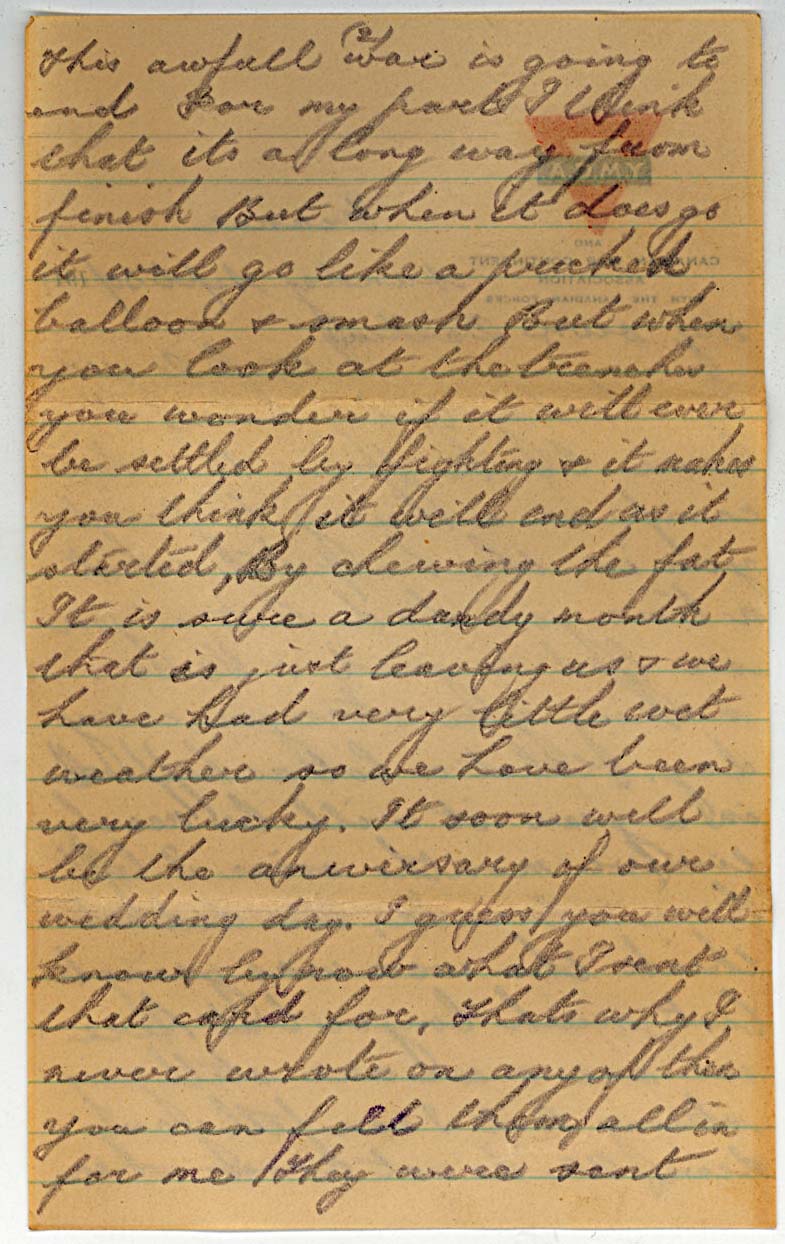 (2)
this awfull War is going to
end For my part I think
that its a long way from
finish But when it does go
it will go like a pricked
balloon & smash But when
you look at the trenches
you wonder if it will ever
be settled by fighting & it makes
you think it will end as it
started, By chewing the fat
It is sure a dandy month
that is just leaving us & we
have had very little wet
weather so we have been
very lucky. It soon will
be the aniversary of our
wedding day. I guess you will
know by now what I sent
that card for, thats why I
never wrote on any of them
you can fill them all in
for me They were sent